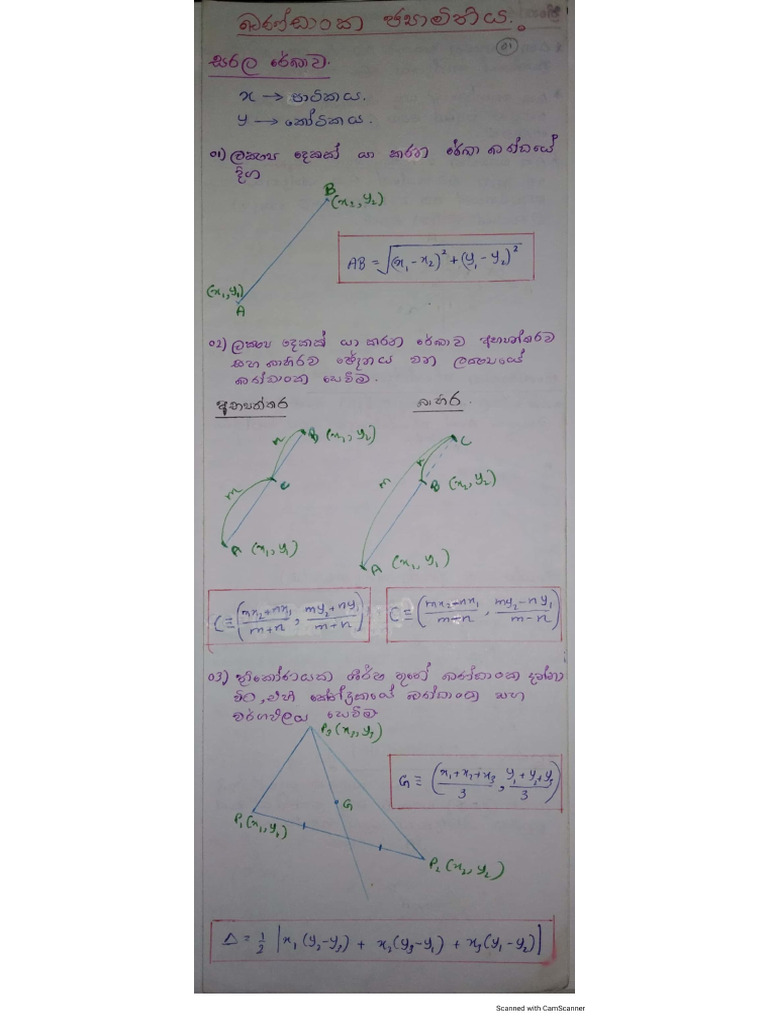 ඛණ්ඩාංක ජ්‍යාමිතිය.
01
සරල රේඛාව.
x → පාටිකය.
y → කෝටිකය.
01) ලක්ෂ්‍ය දෙකක් යා කරන රේඛා ඛණ්ඩයේ
දිග
B
(x₂, y₂)
AB = √(x₁ - x₂)² + (y₁ - y₂)²
(x₁, y₁)
A
02) ලක්ෂ්‍ය දෙකක් යා කරන රේඛාව අභ්‍යන්තරව
සහ බාහිරව ඡේදනය වන ලක්ෂ්‍යයේ
ඛණ්ඩාංක සෙවීම.
අභ්‍යන්තර
බාහිර.
n B (x₂, y₂)
m C
A (x₁, y₁)
C
m n
B (x₂, y₂)
A (x₁, y₁)
C ≡ (mx₂+nx₁/m+n, my₂+ny₁/m+n)
C ≡ (mx₂-nx₁/m-n, my₂-ny₁/m-n)
03) ත්‍රිකෝණයක ශීර්ෂ තුනේ ඛණ්ඩාංක දන්නා
විට, එහි කේන්ද්‍රකයේ ඛණ්ඩාංක සහ
වර්ගඵලය සෙවීම
P₃ (x₃, y₃)
G ≡ (x₁+x₂+x₃/3, y₁+y₂+y₃/3)
G
P₁ (x₁, y₁)
P₂ (x₂, y₂)
Δ = 1/2 |x₁(y₂-y₃) + x₂(y₃-y₁) + x₃(y₁-y₂)|
Scanned with CamScanner